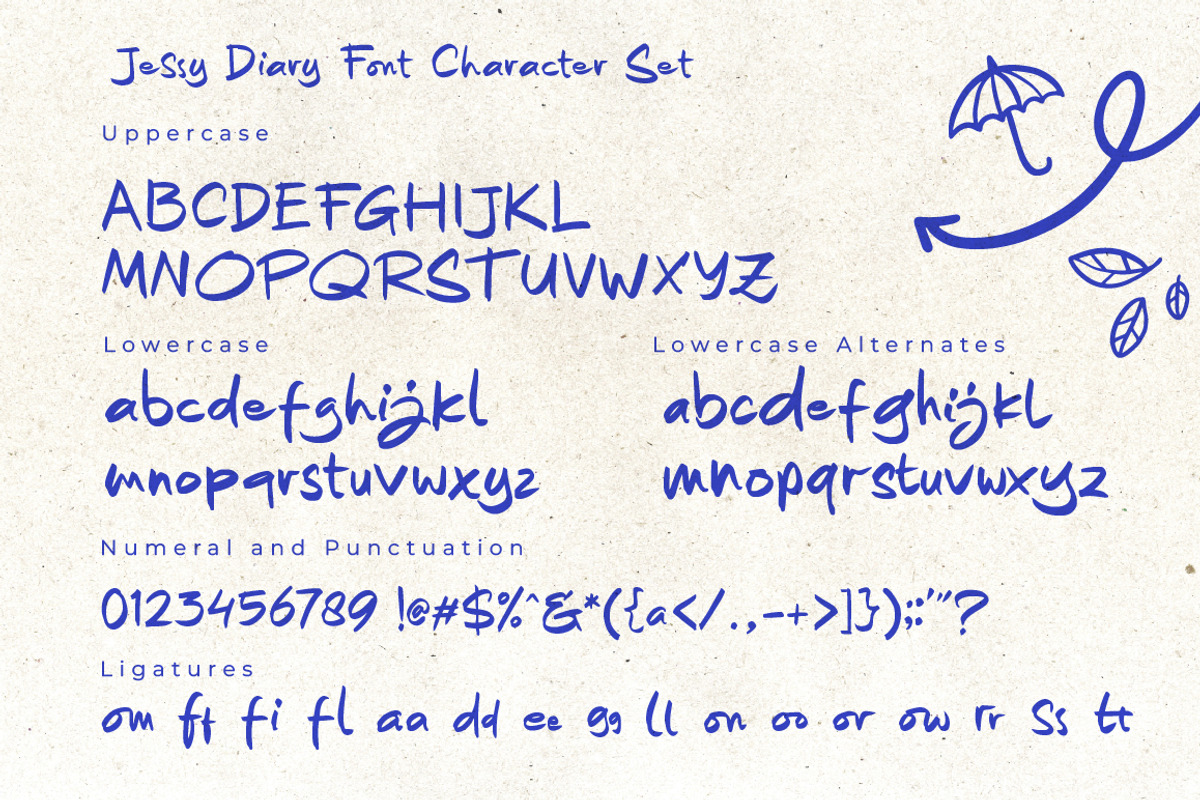 Jessy Diary Font Character Set
Uppercase
ABCDEFGHIJKL
MNOPQRSTUVWXYZ
Lowercase
abcdefghijkl
mnopqrstuvwxyz
Lowercase Alternates
abcdefghijkl
mnopqrstuvwxyz
Numeral and Punctuation
0123456789 !@#$%^&*({a</.,-+>]});:'"?
Ligatures
om ff fi fl aa dd ee gg ll on oo or ow rr ss tt